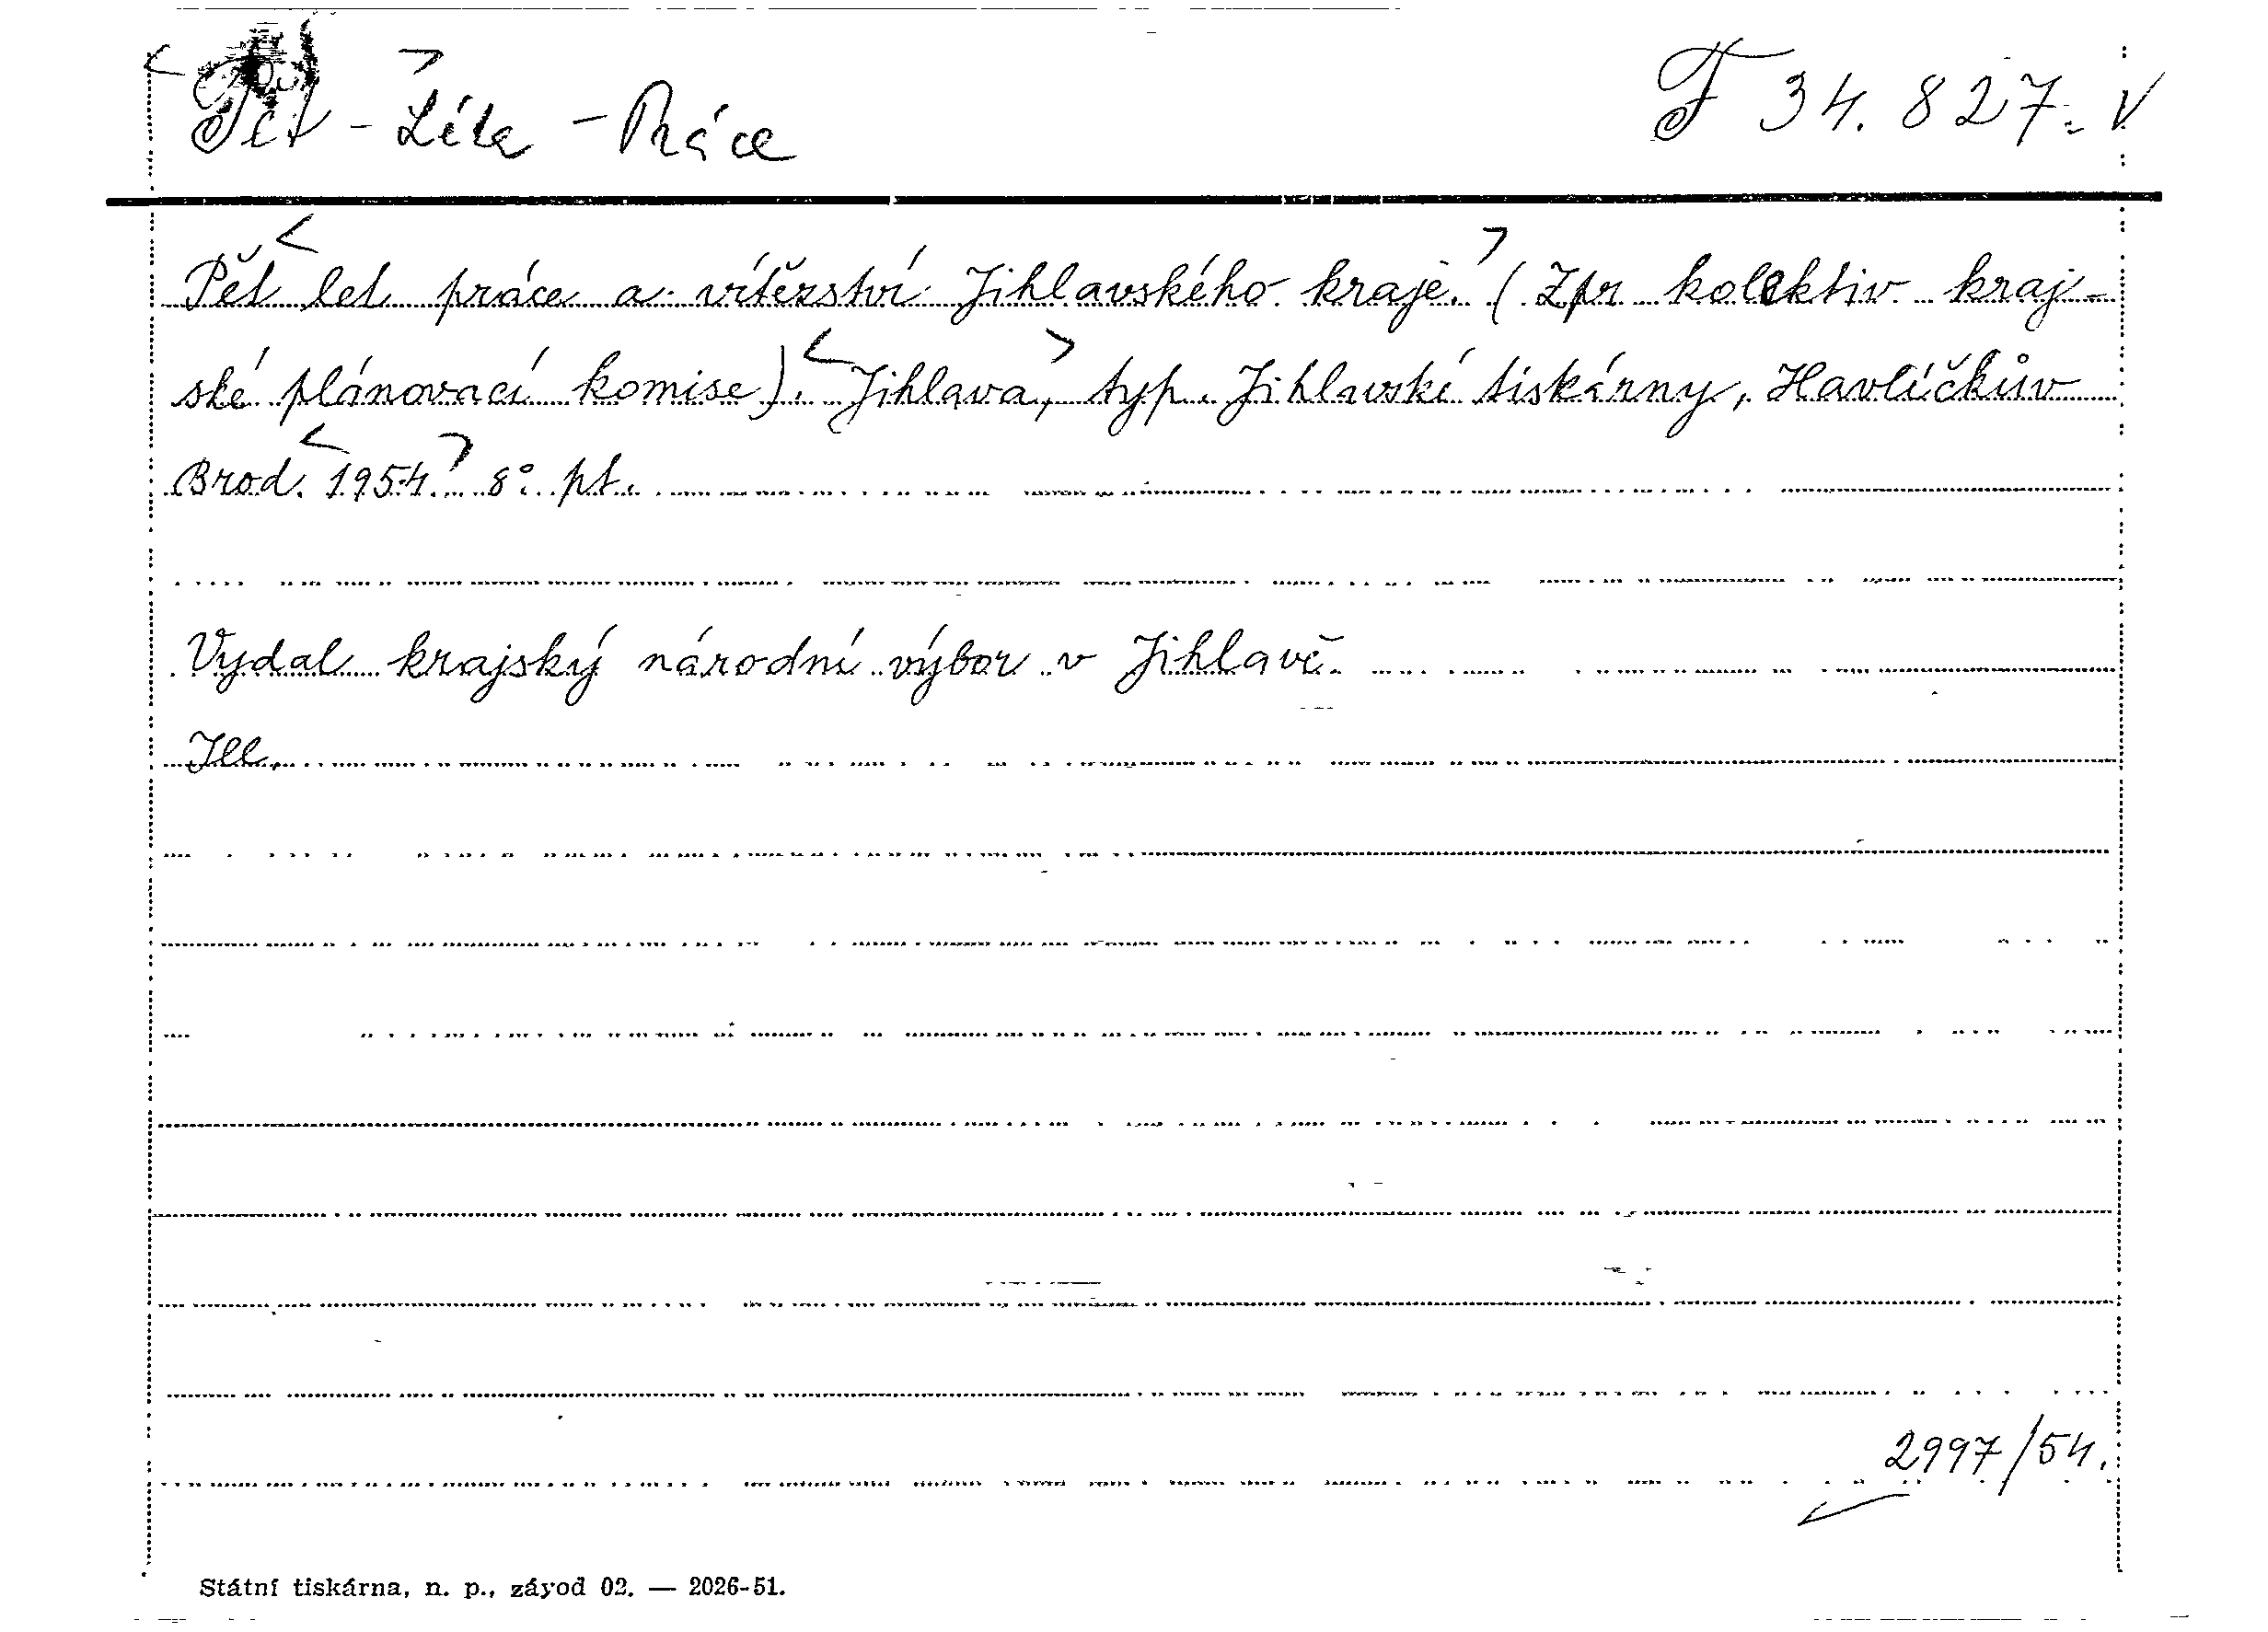 Pět - Léta - Práce F 34.827. V
Pět let práce a vítězství Jihlavského kraje. (Zpr kolektiv kraj-
ské plánovací komise). Jihlava, typ. Jihlavské tiskárny, Havlíčkův
Brod. 1954. 8° pt.
Vydal krajský národní výbor v Jihlavě.
Ill.
2997/54.
Státní tiskárna, n. p., závod 02. — 2026-51.